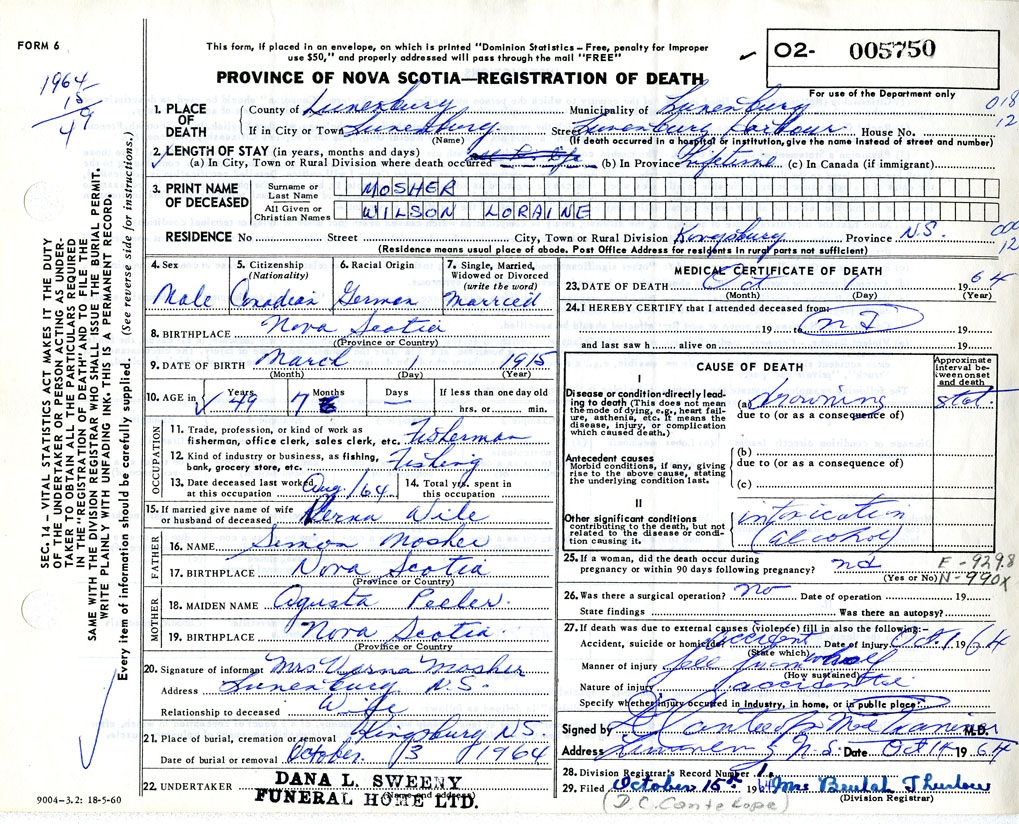 FORM 6
This form, if placed in an envelope, on which is printed "Dominion Statistics—Free, penalty for improper
use $50," and properly addressed will pass through the mail "FREE"
PROVINCE OF NOVA SCOTIA—REGISTRATION OF DEATH
O2- 005750
For use of the Department only
1964
15
49
018
12
1. PLACE OF DEATH
County of Lunenburg Municipality of Lunenburg
If in City or Town Lunenburg Street Lunenburg Harbour House No.
(Name) (If death occurred in a hospital or institution, give the name instead of street and number)
2. LENGTH OF STAY (in years, months and days)
(a) In City, Town or Rural Division where death occurred (b) In Province lifetime (c) In Canada (if immigrant)
3. PRINT NAME OF DECEASED
Surname or Last Name MOSHER
All Given or Christian Names WILSON LORAINE
RESIDENCE No Street City, Town or Rural Division Kingsburg Province N.S.
(Residence means usual place of abode. Post Office Address for residents in rural parts not sufficient)
12
SEC. 14 — VITAL STATISTICS ACT MAKES IT THE DUTY
OF THE UNDERTAKER OR PERSON ACTING AS UNDER-
TAKER TO OBTAIN ALL THE PARTICULARS REQUIRED
IN THE "REGISTRATION OF DEATH" AND TO FILE THE
SAME WITH THE DIVISION REGISTRAR WHO SHALL ISSUE THE BURIAL PERMIT.
WRITE PLAINLY WITH UNFADING INK. THIS IS A PERMANENT RECORD.
Every item of information should be carefully supplied. (See reverse side for instructions.)
4. Sex
Male
5. Citizenship (Nationality)
Canadian
6. Racial Origin
German
7. Single, Married, Widowed or Divorced (write the word)
Married
8. BIRTHPLACE Nova Scotia
(Province or Country)
9. DATE OF BIRTH March 1 1915
(Month) (Day) (Year)
10. AGE in Years 49 Months 7 Days — If less than one day old
hrs. or min.
OCCUPATION
11. Trade, profession, or kind of work as
fisherman, office clerk, sales clerk, etc. Fisherman
12. Kind of industry or business, as fishing,
bank, grocery store, etc. Fishing
13. Date deceased last worked
at this occupation Aug/64
14. Total yrs. spent in
this occupation
15. If married give name of wife
or husband of deceased Verna Wile
FATHER
16. NAME Simon Mosher
17. BIRTHPLACE Nova Scotia
(Province or Country)
MOTHER
18. MAIDEN NAME Agusta Peeler
19. BIRTHPLACE Nova Scotia
(Province or Country)
20. Signature of informant Mrs Verna Mosher
Address Lunenburg N.S.
Relationship to deceased Wife
21. Place of burial, cremation or removal Kingsburg N.S.
Date of burial or removal October 3 1964
22. UNDERTAKER DANA L. SWEENY
FUNERAL HOME LTD.
(Name and address)
9004—3.2: 18-5-60
MEDICAL CERTIFICATE OF DEATH
23. DATE OF DEATH Oct 1 1964
(Month) (Day) (Year)
24. I HEREBY CERTIFY that I attended deceased from:
19 to 19
and last saw h alive on 19
CAUSE OF DEATH
Approximate interval between onset and death
I
Disease or condition directly leading to death (This does not mean the mode of dying, e.g., heart failure, asthenia, etc. It means the disease, injury, or complication which caused death.)
(a) drowning stat.
due to (or as a consequence of)
Antecedent causes
Morbid conditions, if any, giving rise to the above cause, stating the underlying condition last.
(b)
due to (or as a consequence of)
(c)
II
Other significant conditions contributing to the death, but not related to the disease or condition causing it.
intoxication
(alcohol)
25. If a woman, did the death occur during
pregnancy or within 90 days following pregnancy?
(Yes or No)
E-929.8
N-990X
26. Was there a surgical operation? no Date of operation 19
State findings Was there an autopsy?
27. If death was due to external causes (violence) fill in also the following:—
Accident, suicide or homicide accident Date of injury Oct. 1 64
(State which)
Manner of injury fell from wharf
(How sustained)
Nature of injury accidental
Specify whether injury occurred in industry, in home, or in public place?
Signed by M.D.
Address N.S. Date Oct 14 1964
28. Division Registrar's Record Number 1.
29. Filed October 15th 1964 Mrs Beulah Thurlow
(Division Registrar)